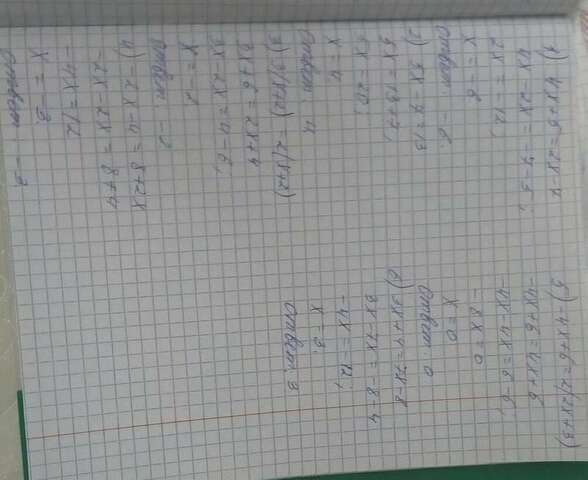 1) 4x+5=2x-7
4x-2x=-7-5;
2x=-12;
x=-6
Ответ: -6.
2) 5x-7=13
5x=13+7;
5x=20;
x=4
Ответ: 4
3) 3(x+2)=2(x+2)
3x+6=2x+4
3x-2x=4-6;
x=-2
Ответ: -2
4) -2x-4=8+2x
-2x-2x=8+4
-4x=12
x=-3
Ответ: -3
5) -4x+6=2(2x+3)
-4x+6=4x+6
-4x-4x=6-6;
-8x=0
x=0
Ответ: 0
6) 3x+4=7x-8
3x-7x=-8-4
-4x=-12;
x=3;
Ответ: 3